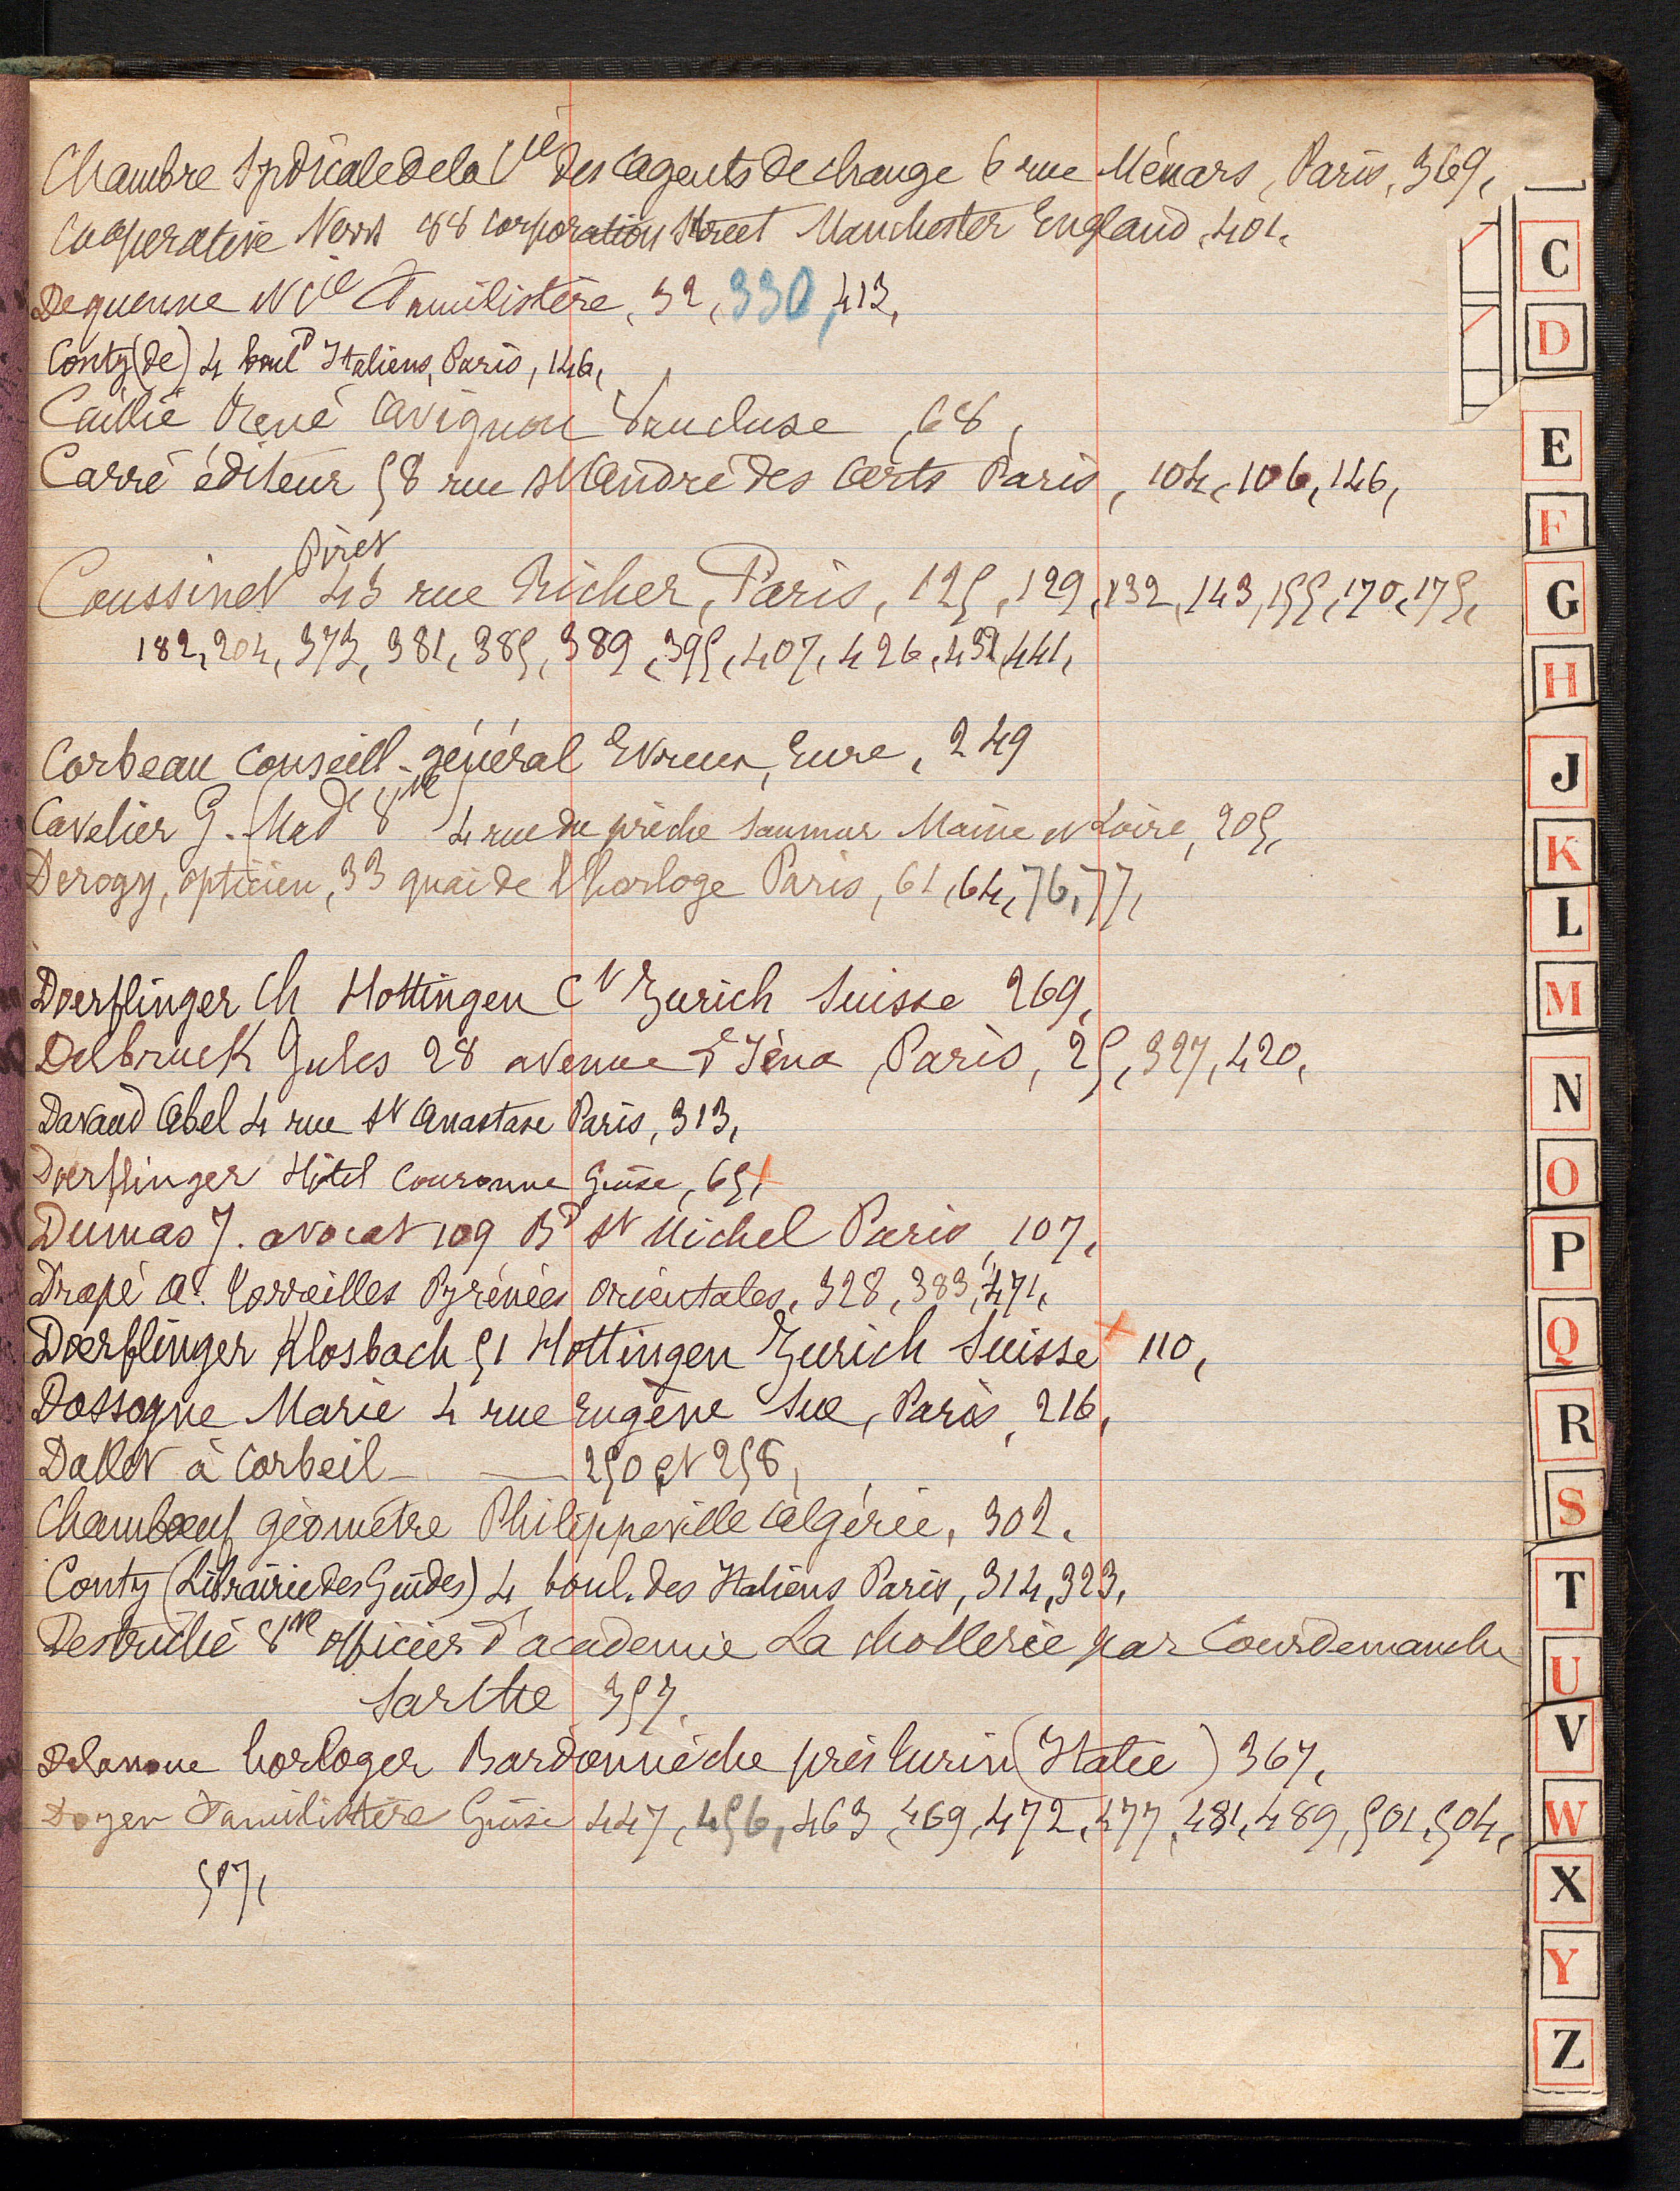 Chambre Syndicale de la Cie des agents de change 6 rue Ménars, Paris, 369,
Cooperative News 88 corporation Street Manchester England, 401,
Dequenne et Cie Familistère, 32, 330, 413,
Conty (de) 4 boul^d Italiens, Paris, 146,
Caillié René Avignon Vaucluse, 68,
Carré éditeur 58 rue St André des Arts Paris, 104, 106, 146,
Piret
Coussinet 43 rue Richer, Paris, 125, 129, 132, 143, 155, 170, 175,
182, 204, 373, 381, 385, 389, 395, 407, 426, 432, 441,
Corbeau conseill-général Evreux, Eure, 249
Cavelier G. (Mad^e V^ve) 4 rue du prêche Saumur Maine et Loire, 205,
Derogy, opticien, 33 quai de l'horloge Paris, 61, 64, 76, 77,
Doerflinger Ch Hottingen Ct Zurich Suisse 269,
Delbruck Jules 28 avenue d'Iéna, Paris, 25, 327, 420,
Davaud Abel 4 rue St Anastase Paris, 313,
Doerflinger Hôtel Couronne Guise, 65, x
Dumas J. avocat 109 Bd St Michel Paris, 107,
Drapé A. Corneilles Pyrénées orientales, 328, 383, 471,
Doerflinger Klosbach 51 Hottingen Zurich Suisse x 110,
Dossogne Marie 4 rue Eugène Sue, Paris, 216,
Dallet à Corbeil — — 250 et 258,
Chamboeuf géomètre Philippeville Algérie, 302,
Conty (Librairie des Guides) 4 boul. des Italiens Paris, 314, 323,
Destriché V^ve officier d'academie La chollerie par Courdemanche
Sarthe 357,
Delanoue horloger Bardonnèche près Turin (Italie) 367,
Doyen Familistère Guise 447, 456, 463, 469, 472, 477, 481, 489, 501, 504,
507,
C
D
E
F
G
H
J
K
L
M
N
O
P
Q
R
S
T
U
V
W
X
Y
Z